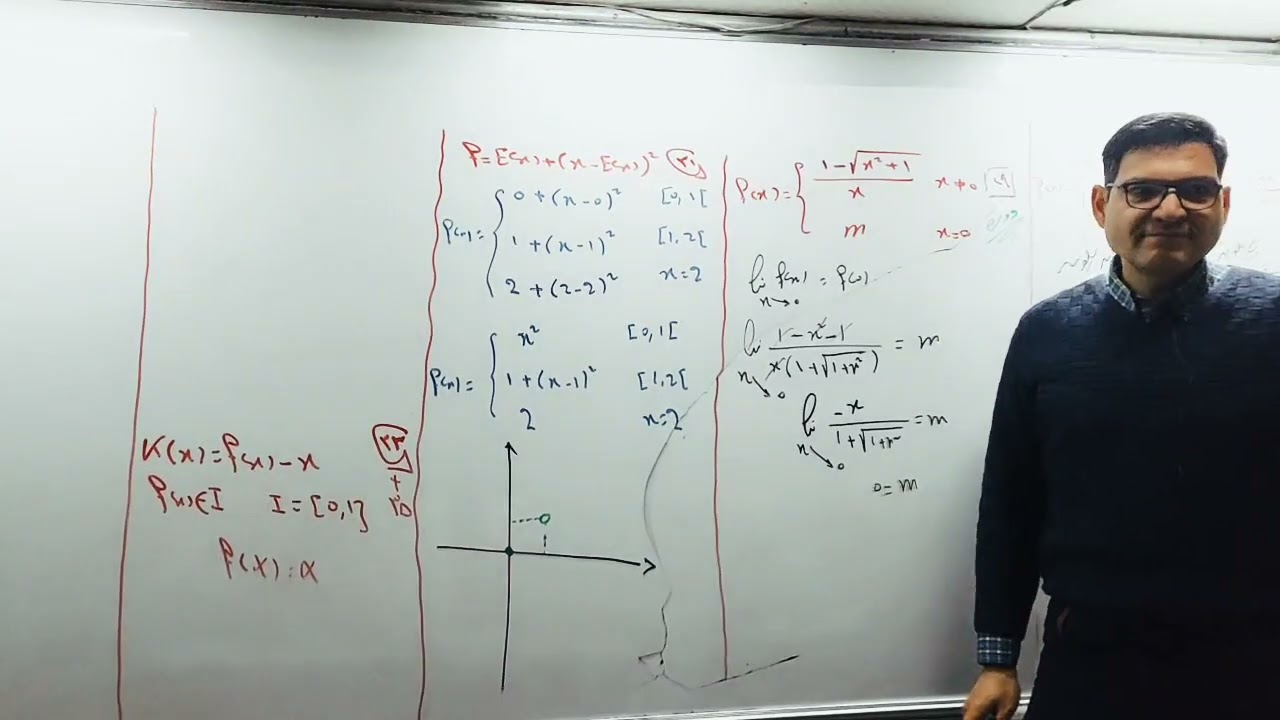 K(x)=f(x)-x ٢٣
+
f(x)∈I I=[0,1] ٢٥
f(x)=α
f=E(x)+(x-E(x))² ٢١
f(x)= { 0+(x-0)² [0,1[
1+(x-1)² [1,2[
2+(2-2)² x=2
f(x)= { x² [0,1[
1+(x-1)² [1,2[
2 x=2
f(x)= { (1-√(x²+1))/x x≠0
m x=0
lim x→0 f(x)=f(0)
lim x→0 (1-x²-1)/(x(1+√(1+x²))) = m
lim x→0 (-x)/(1+√(1+x²)) = m
0=m